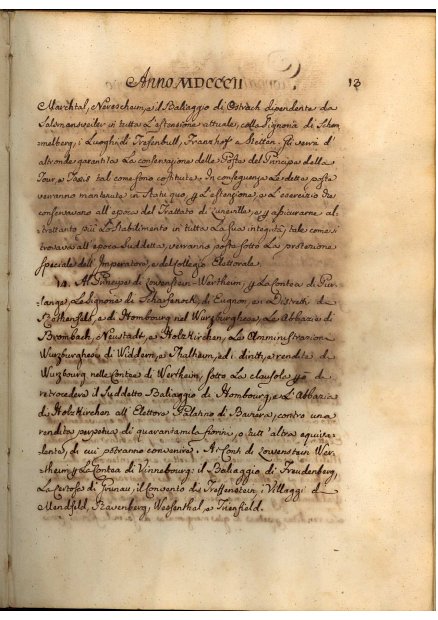 Anno MDCCCII 13
Marchtal, Neresheim, e il Baliaggio di Ostrach dipendente da
Salsmansweiler in tutta l'estensione attuale, colla Signoria di Schem
melberg, i Luoghi di Trefenbull, Franzhof e Stetten. Gli verrà d'
altronde garantita la conservazione delle Poste del Principe della
Tour, e Taxis tal come sono costituite. In conseguenza le dette poste
verranno mantenute in statu quo, p l'estenzione, e l'esercizio che
conservavano all'epoca del Trattato di Luneville, e p assicurare al-
trettanto più lo stabilimento in tutta la sua integrità, tale come si
trovava all'epoca suddetta, verranno poste sotto la protezione
speciale dell'Imperatore, e del Collegio Elettorale.
14. Al Principe di Lowenstein-Wertheim, p la Contea di
lange, le Signorie de Scharfeneck, di Cugnon, e i Distretti de
Rothenfels, e de Hombourg nel Wurzburghese, le Abbazie di
Brombach, Neustadt, e Holzkirchen, le Amministrazioni
Wurzburghesi di Widdern, e Thalheim, ed i diritti, e rendite de
Wurzbourg nella Contea di Wertheim, sotto la clausola di
retrocedere il suddetto Baliaggio di Hombourg, e l'Abbazia
de Holzkirchen all'Elettore Palatino di Baviera, contro una
rendita perpetua di quarantamila fiorini, o tutt'altro equiva-
lente, di cui potranno convenire. Ai Conti de Lowenstein Wer-
theim, p la Contea di Vinnebourg: il Baliaggio di Freudenberg,
la Certosa di Grunau, il Convento de Treffenstein, i Villaggi de
Mondfeld, Ravenberg, Wessenthal, e Trenfield.